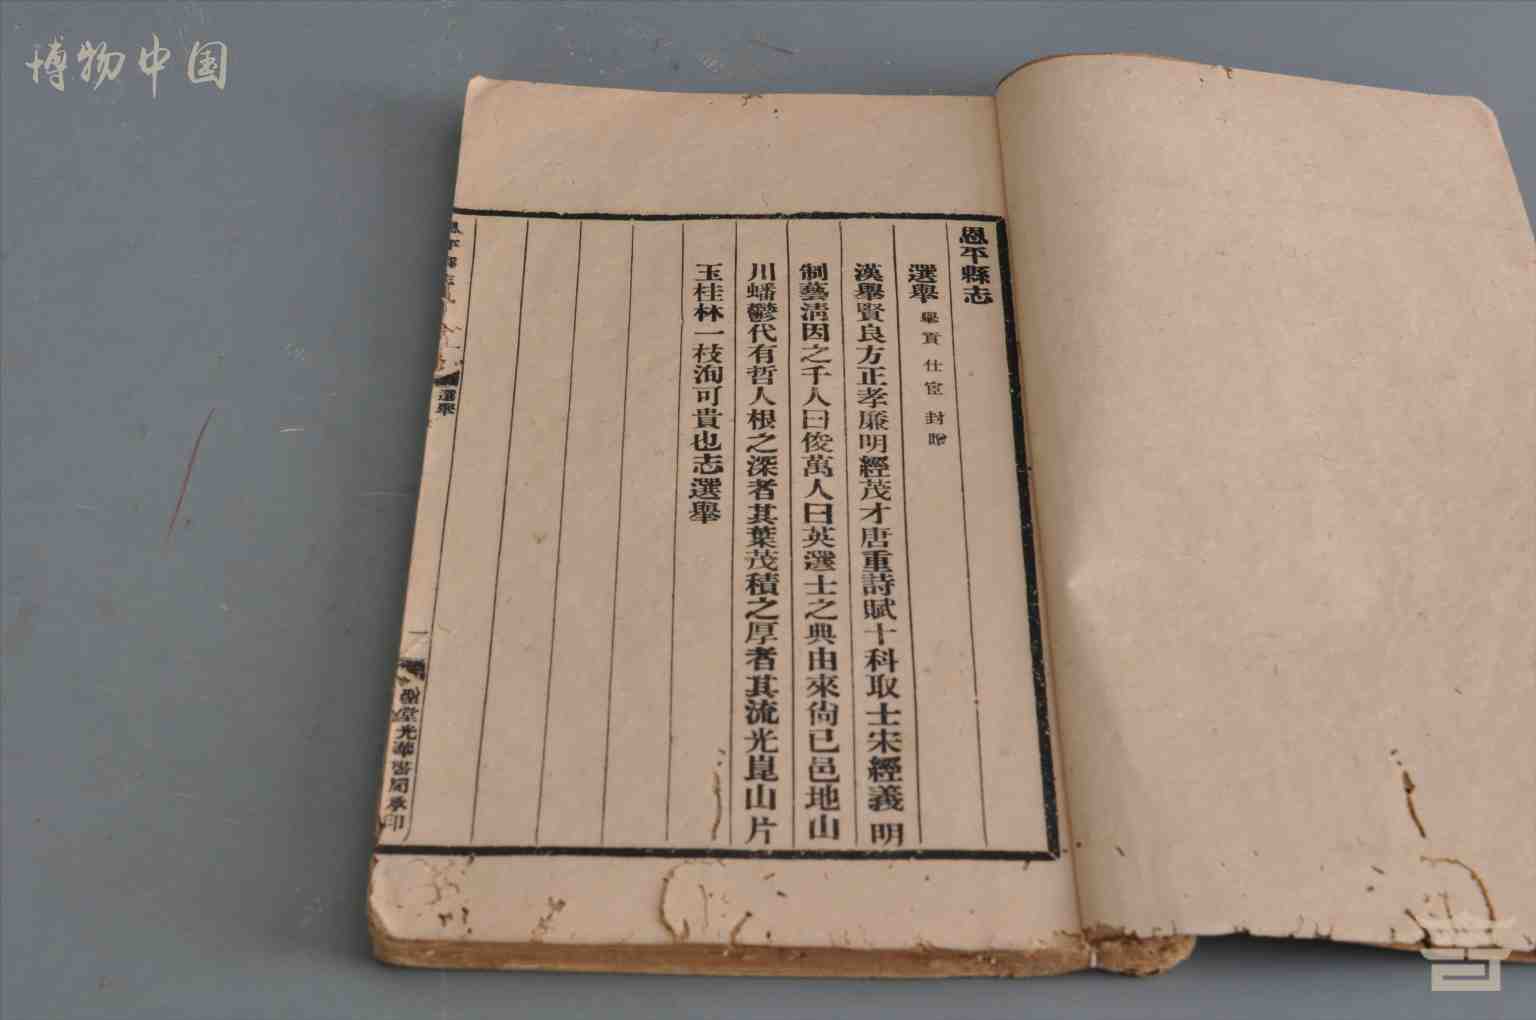 博物中国
恩平縣志
選舉 舉貢 仕宦 封贈
漢舉賢良方正孝廉明經茂才唐重詩賦十科取士宋經義明
制藝淸因之千人曰俊萬人曰英選士之典由來尙已邑地山
川蟠鬱代有哲人根之深者其葉茂積之厚者其流光崑山片
玉桂林一枝洵可貴也志選舉
恩平縣志
選舉
一
堂光華書局承印